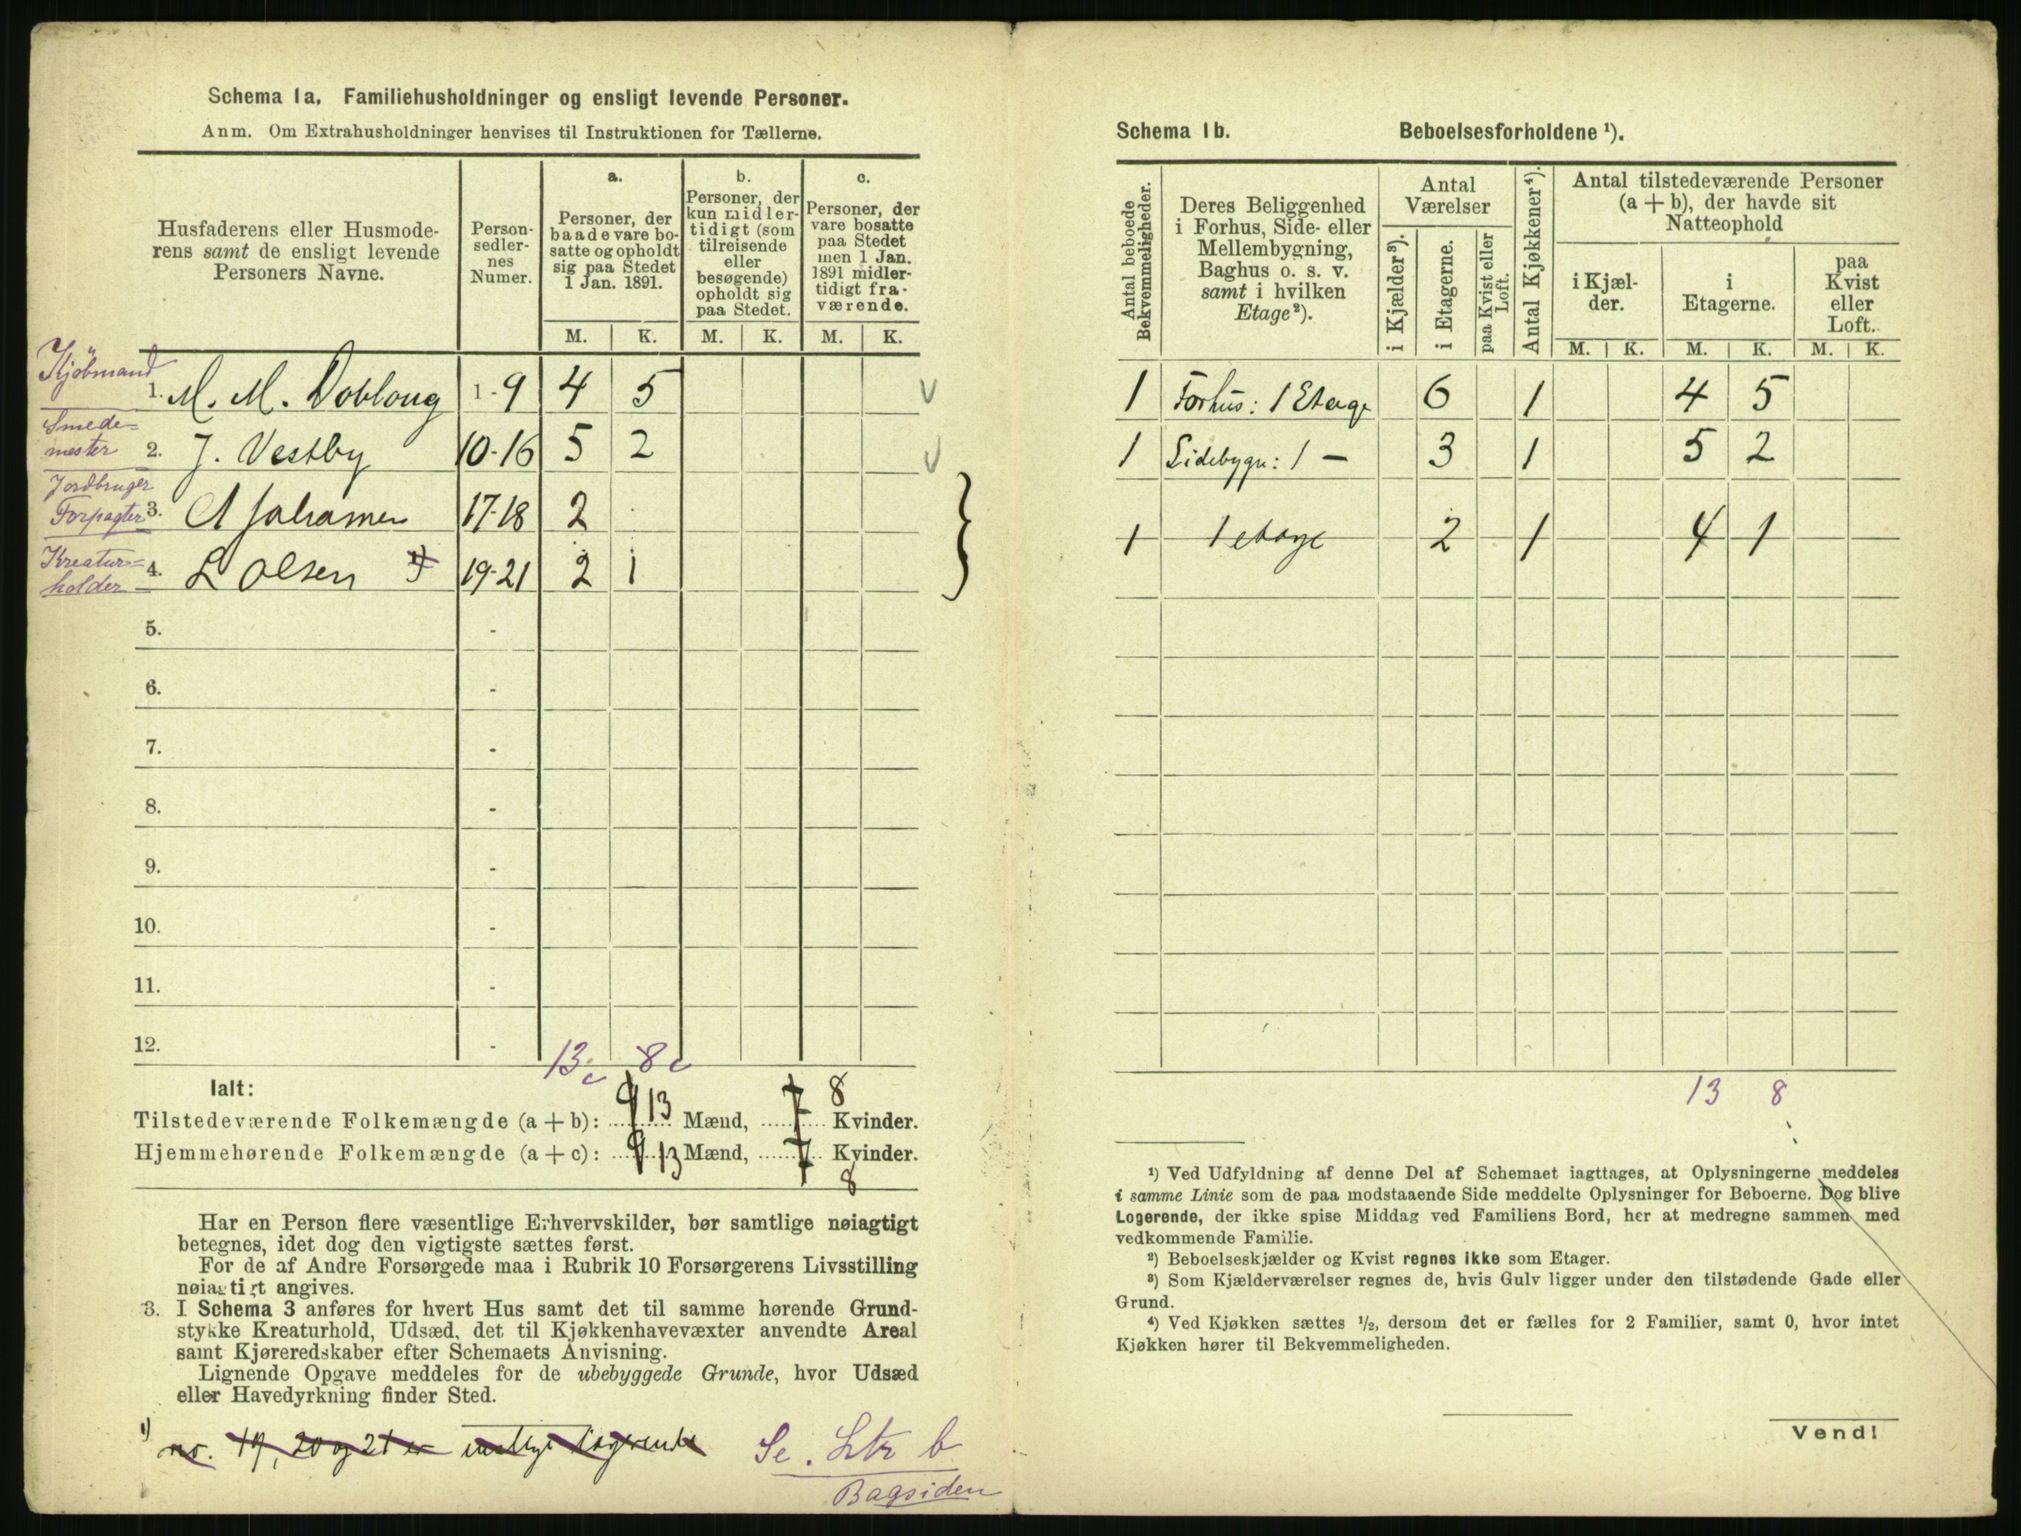 Schema 1a. Familiehusholdninger og ensligt levende Personer.
Anm. Om Extrahusholdninger henvises til Instruktionen for Tællerne.
Husfaderens eller Husmode-
rens samt de ensligt levende
Personers Navne.
Person-
sedler-
nes
Numer.
a.
Personer, der
baade vare bo-
satte og opholdt
sig paa Stedet
1 Jan. 1891.
b.
Personer, der
kun midler-
tidigt (som
tilreisende
eller
besøgende)
opholdt sig
paa Stedet.
c.
Personer, der
vare bosatte
paa Stedet
men 1 Jan.
1891 midler-
tidigt fra-
værende.
M. K. M. K. M. K.
Kjöbmand
1. M. M. Dobloug 1-9 4 5
Smede-
mester 2. J. Vestby 10-16 5 2
Jordbruger
Forpagter 3. A Johansen 17-18 2
Kreatur-
holder 4. L Olsen 1) 19-21 2 1
5. -
6. -
7. -
8. -
9. -
10. -
11. -
12. -
13 8
Ialt:
Tilstedeværende Folkemængde (a + b): 9 13 Mænd, 7 8 Kvinder.
Hjemmehørende Folkemængde (a + c): 9 13 Mænd, 7 8 Kvinder.
Har en Person flere væsentlige Erhvervskilder, bør samtlige nøiagtigt
betegnes, idet dog den vigtigste sættes først.
For de af Andre Forsørgede maa i Rubrik 10 Forsørgerens Livsstilling
nøiagtigt angives.
3. I Schema 3 anføres for hvert Hus samt det til samme hørende Grund-
stykke Kreaturhold, Udsæd, det til Kjøkkenhavevæxter anvendte Areal
samt Kjøreredskaber efter Schemaets Anvisning.
Lignende Opgave meddeles for de ubebyggede Grunde, hvor Udsæd
eller Havedyrkning finder Sted.
1) no. 19, 20 og 21 er enslige logerende
Se. Ltr b
Bagsiden
Schema 1b. Beboelsesforholdene ¹).
Antal beboede
Bekvemmeligheder.
Deres Beliggenhed
i Forhus, Side- eller
Mellembygning,
Baghus o. s. v.
samt i hvilken
Etage²).
Antal
Værelser
i Kjælder³).
i Etagerne.
paa Kvist eller
Loft.
Antal Kjøkkener⁴).
Antal tilstedeværende Personer
(a + b), der havde sit
Natteophold
i Kjæl-
der.
i
Etagerne.
paa
Kvist
eller
Loft.
M. K. M. K. M. K.
1 Forhus: 1 Etage 6 1 4 5
1 Sidebygn: 1 — 3 1 5 2
1 1 etage 2 1 4 1
13 8
¹) Ved Udfyldning af denne Del af Schemaet iagttages, at Oplysningerne meddeles
i samme Linie som de paa modstaaende Side meddelte Oplysninger for Beboerne. Dog blive
Logerende, der ikke spise Middag ved Familiens Bord, her at medregne sammen med
vedkommende Familie.
²) Beboelseskjælder og Kvist regnes ikke som Etager.
³) Som Kjælderværelser regnes de, hvis Gulv ligger under den tilstødende Gade eller
Grund.
⁴) Ved Kjøkken sættes ½, dersom det er fælles for 2 Familier, samt 0, hvor intet
Kjøkken hører til Bekvemmeligheden.
Vend!